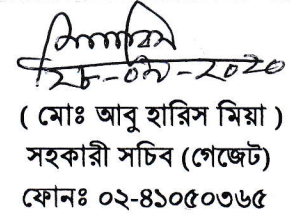 ২৮-০৯-২০২০
( মোঃ আবু হারিস মিয়া )
সহকারী সচিব (গেজেট)
ফোনঃ ০২-৪১০৫০৩৬৫